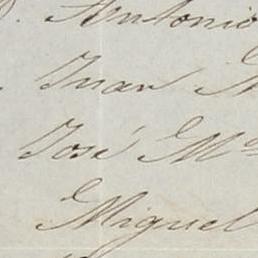 D. Antonio
Juan
José Mª
Miguel